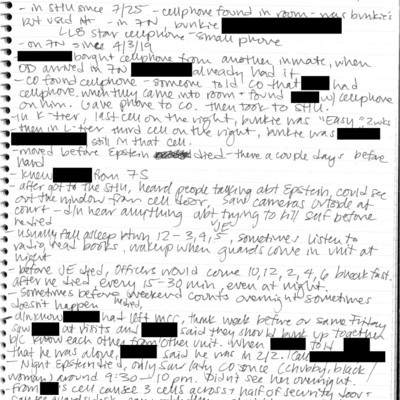 - in SHU since 7/25 - cellphone found in room - was bunkie's
but used it - in 7N bunkie
LLB star cellphone - small phone
- on 7N since 4/3/19
bought cellphone from another inmate, when
OD arrived in 7N already had it
- CO found cellphone - someone told CO that had
cellphone. when they came into room + found w/ cellphone
on him. Gave phone to CO. then took to SHU.
- in K-tier, last cell on the right, bunkie was "Easy" 2 wks
- then in L-tier third cell on the right, bunkie was
still in that cell.
- moved before Epstein died - there a couple days before
hand
- knew from 7S
- after got to the SHU, heard people talking abt Epstein, could see
out the window from cell door, saw cameras outside at
court - d/n hear anything abt trying to kill self before
he died
- usually fall asleep btwn 12-3, 4, 5, sometimes listen to
radio, read books, wakeup when guards come in unit at
night
- before JE died, officers would come 10, 12, 2, 4, 6 breakfast.
after he died, every 15-30 min, even at night.
- sometimes before weekend counts overnight sometimes
doesn't happen
- d/n know had left MCC, think week before or same Friday
saw at visits and said they should bunk up together
b/c know each other from other unit. When told
that he was alone, said he was in 2/2.
Night Epstein died, only saw lady CO since (chubby, black
woman) around 9:30-10pm. Didn't see her overnight.
from cell can see 3 cells across + half of security door +